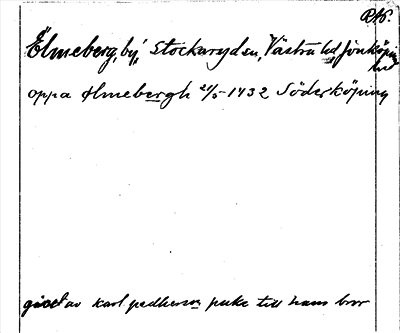 RAP.
Älmeberg, by, Stockaryd sn, Västra hd, Jönköping
län
oppa ælmebergh 21/5 1432 Söderköping
givet av karl pedhersson puke till hans bror